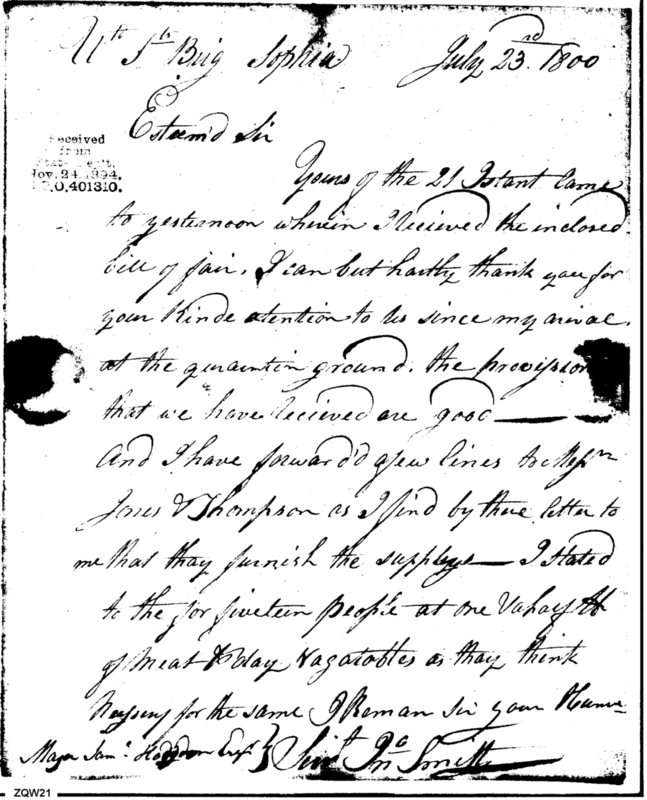 Uts Sts Brig Sophia July 23rd 1800
Esteemd Sir
Received
from
State Dept.
Nov. 24. 1894.
R.P.O. 401310.
Yours of the 21 Istant Came
to yesternoon wherin I Recieved the inclosed
bill of fair. I can but hartly thank you for
your Kinde atention to us since my arival
at the quraintin ground. the provission
that we have Recieved are good
And I have forward'd a few lines to Messrs
Jones & Thompson as I find by there letter to
me that thay furnish the supplys — I stated
to the for fiveteen people at one
of Meat & day Vagatables as thay think
for the same I Reman Sir your Hum
Major Saml. Hodgdon Esqr. } Servt. Jno Smith
ZQW21